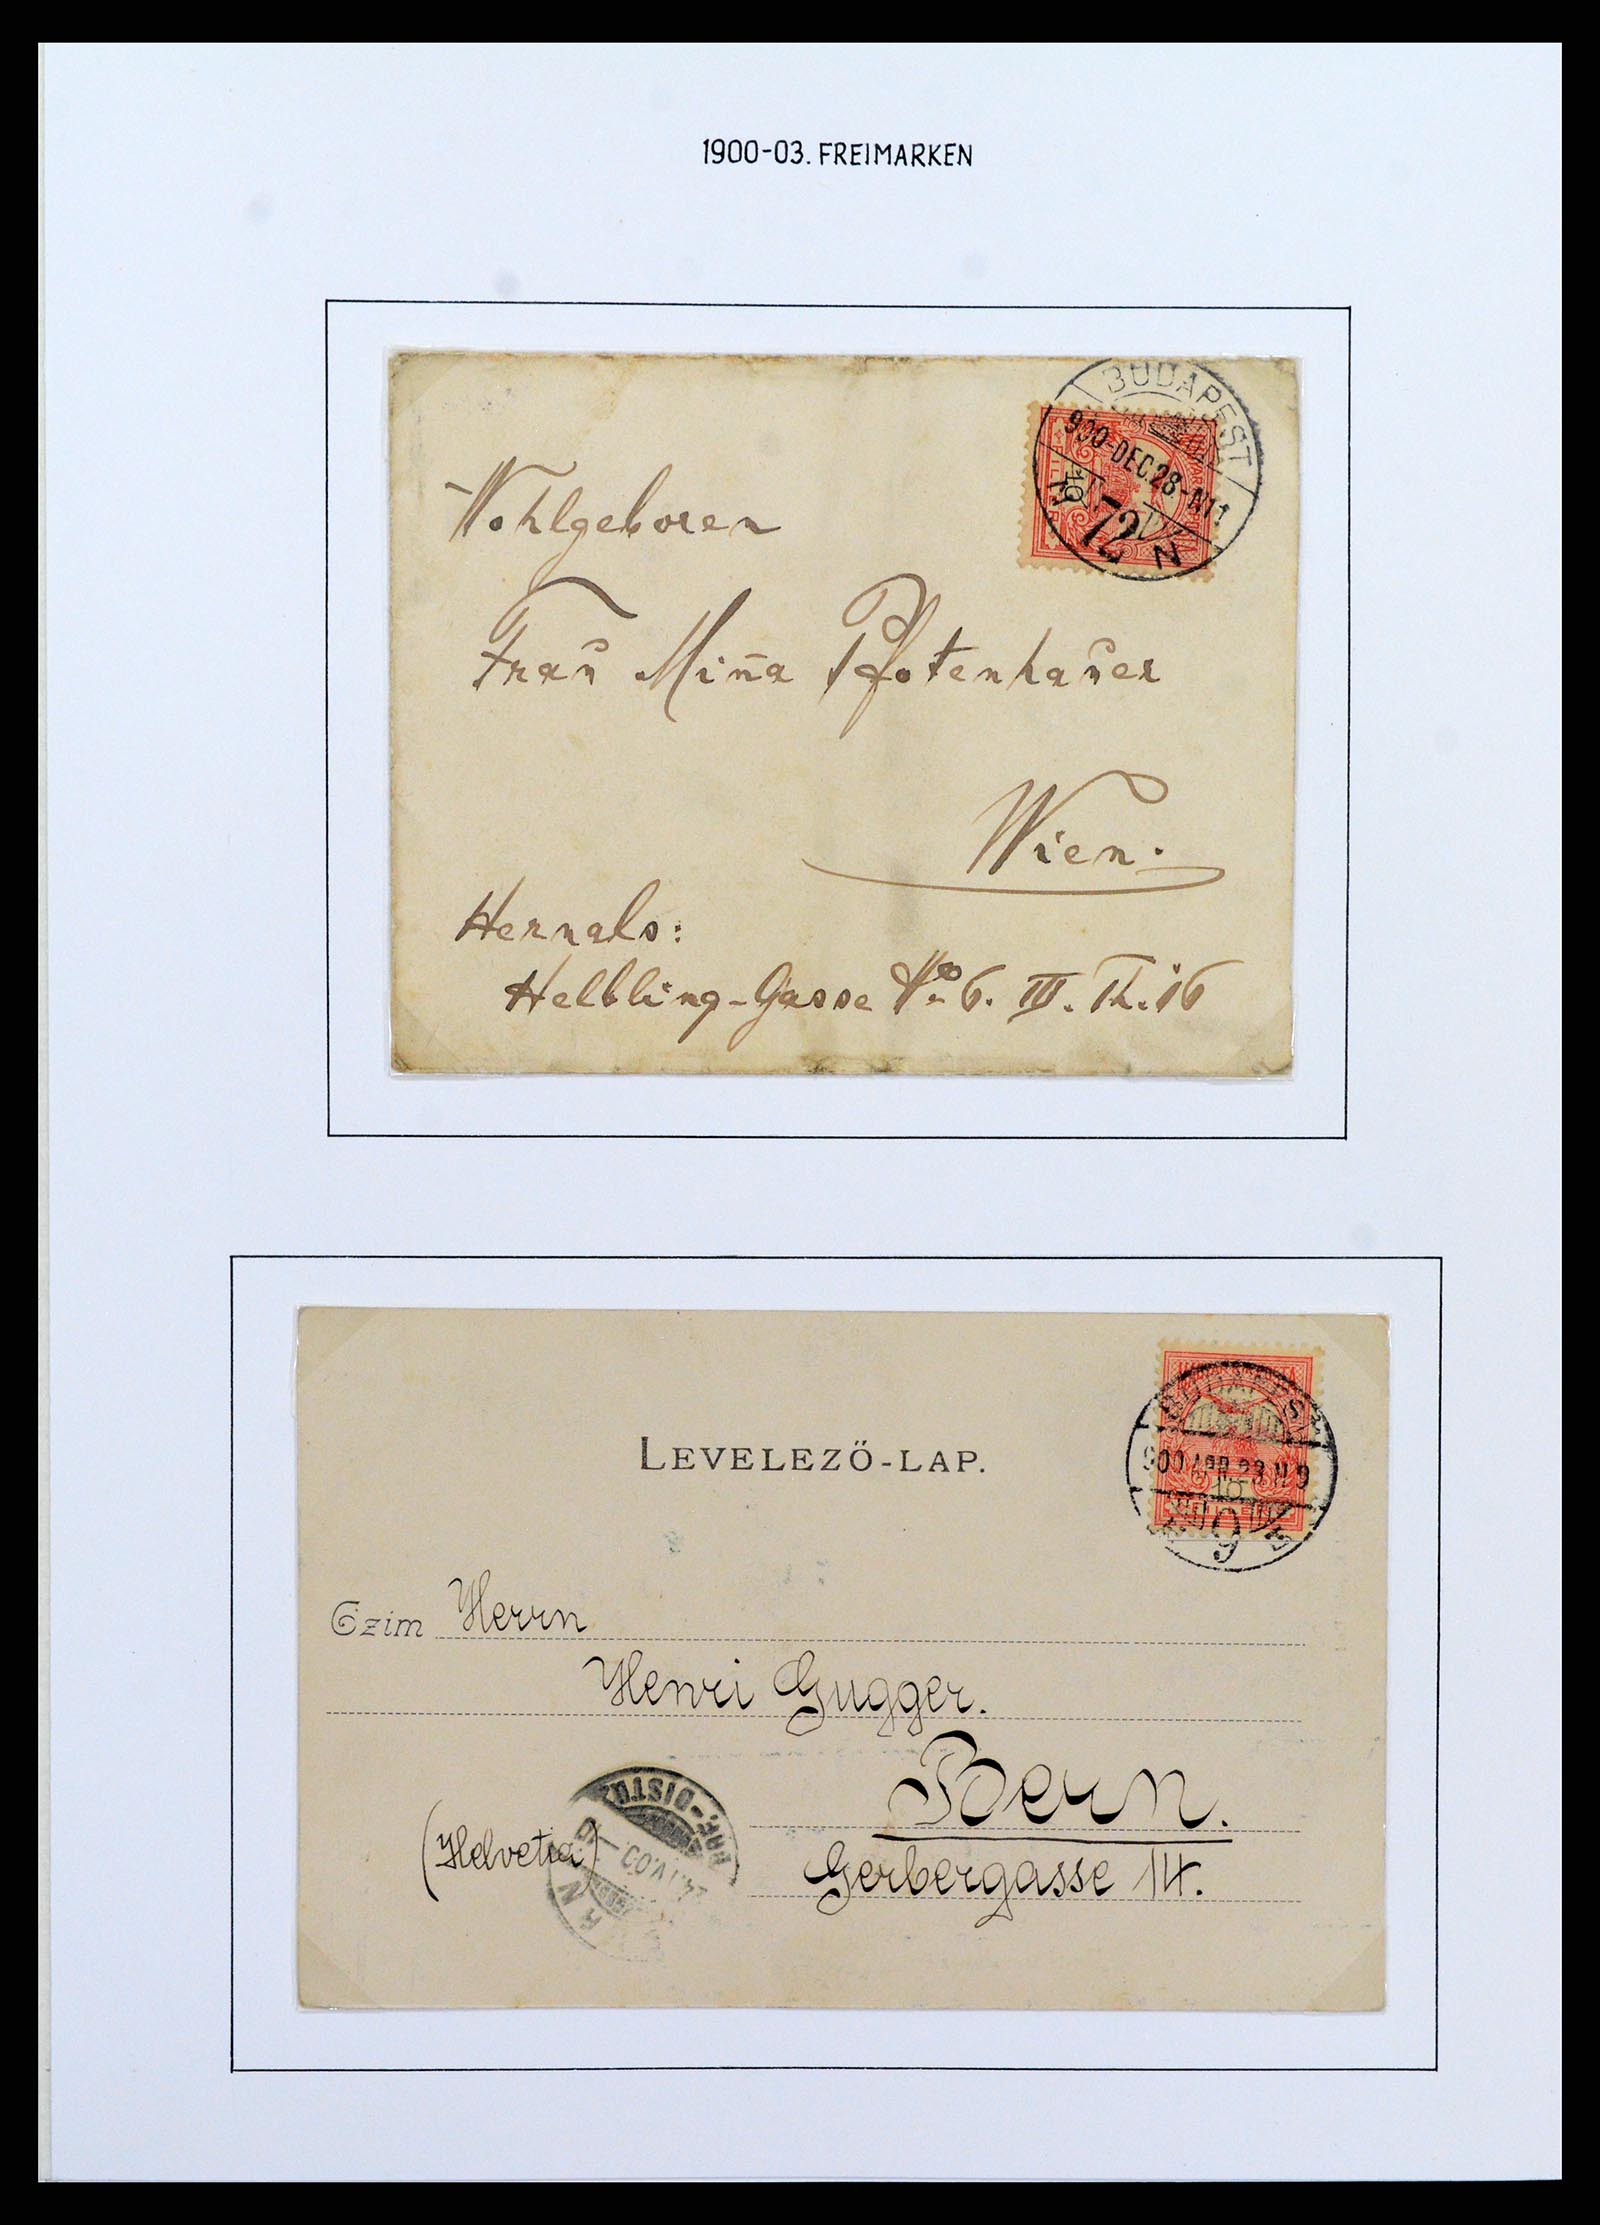 1900-03. FREIMARKEN
BUDAPEST
900-DEC.28-N11
72 N
10
Wohlgeboren
Frau Mina Pfotenhauer
Wien.
Hernals:
Helbling-Gasse No 6. III. Th. 16
LEVELEZŐ-LAP.
900 APR 23 N 9
10
9
Czim Herrn
Henri Gugger.
Bern.
(Helvetia)
Gerbergasse 14.
BRF.-DISTR.
24.IV.00.